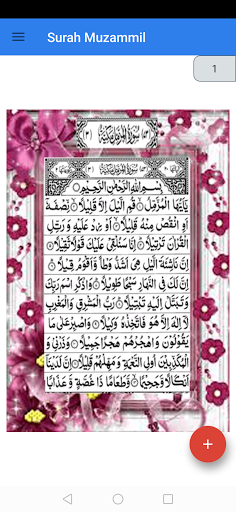 Surah Muzammil
1
سورة المزمل مكية
سورة المزمل مكية
بسم الله الرحمن الرحيم
يايها المزمل قم اليل الا قليلا نصفه
او انقص منه قليلا او زد عليه و رتل
القران ترتيلا انا سنلقي عليك قولا ثقيلا
ان ناشئة اليل هي اشد وطا و اقوم قيلا
ان لك في النهار سبحا طويلا واذكر اسم ربك
و تبتل اليه تبتيلا رب المشرق والمغرب
لا اله الا هو فاتخذه وكيلا واصبر على ما
يقولون و اهجرهم هجرا جميلا وذرني و
المكذبين اولي النعمة و مهلهم قليلا ان لدينا
انكالا وجحيما و طعاما ذا غصة و عذابا
+